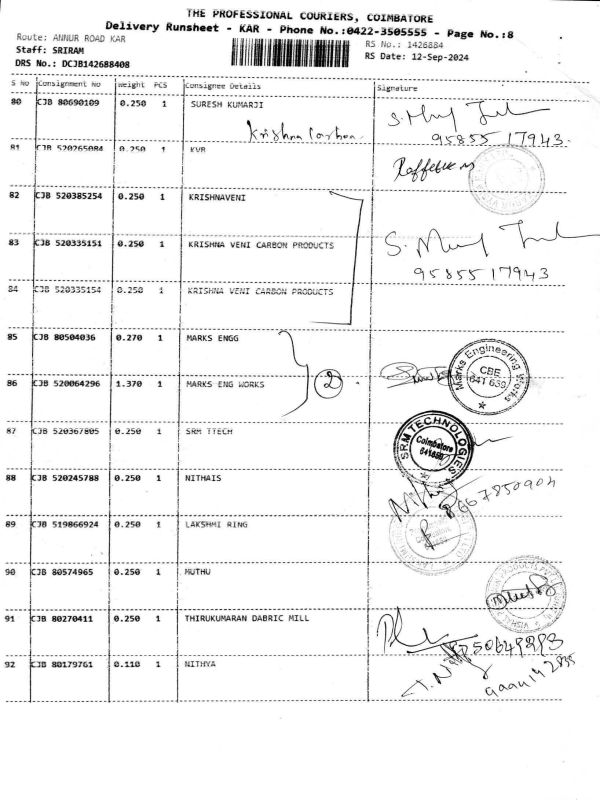 THE PROFESSIONAL COURIERS, COIMBATORE
Delivery Runsheet - KAR - Phone No.:0422-3505555 - Page No.:8
Route: ANNUR ROAD KAR
RS No.: 1426884
Staff: SRIRAM
RS Date: 12-Sep-2024
DRS No.: DCJB142688408
S No Consignment No Weight PCS Consignee Details Signature
80 CJB 80690109 0.250 1 SURESH KUMARJI
Krishna Carbon
95855 17943
81 CJB 520265084 0.250 1 KVR
82 CJB 520385254 0.250 1 KRISHNAVENI
83 CJB 520335151 0.250 1 KRISHNA VENI CARBON PRODUCTS
95855 17943
84 CJB 520335154 0.250 1 KRISHNA VENI CARBON PRODUCTS
85 CJB 80504036 0.270 1 MARKS ENGG
Marks Engineering Works
CBE
641 659
86 CJB 520064296 1.370 1 MARKS ENG WORKS
2
87 CJB 520367805 0.250 1 SRM TTECH
SRM TECHNOLOGIES
Coimbatore
641659
88 CJB 520245788 0.250 1 NITHAIS
8667850904
89 CJB 519866924 0.250 1 LAKSHMI RING
90 CJB 80574965 0.250 1 MUTHU
91 CJB 80270411 0.250 1 THIRUKUMARAN DABRIC MILL
92 CJB 80179761 0.110 1 NITHYA